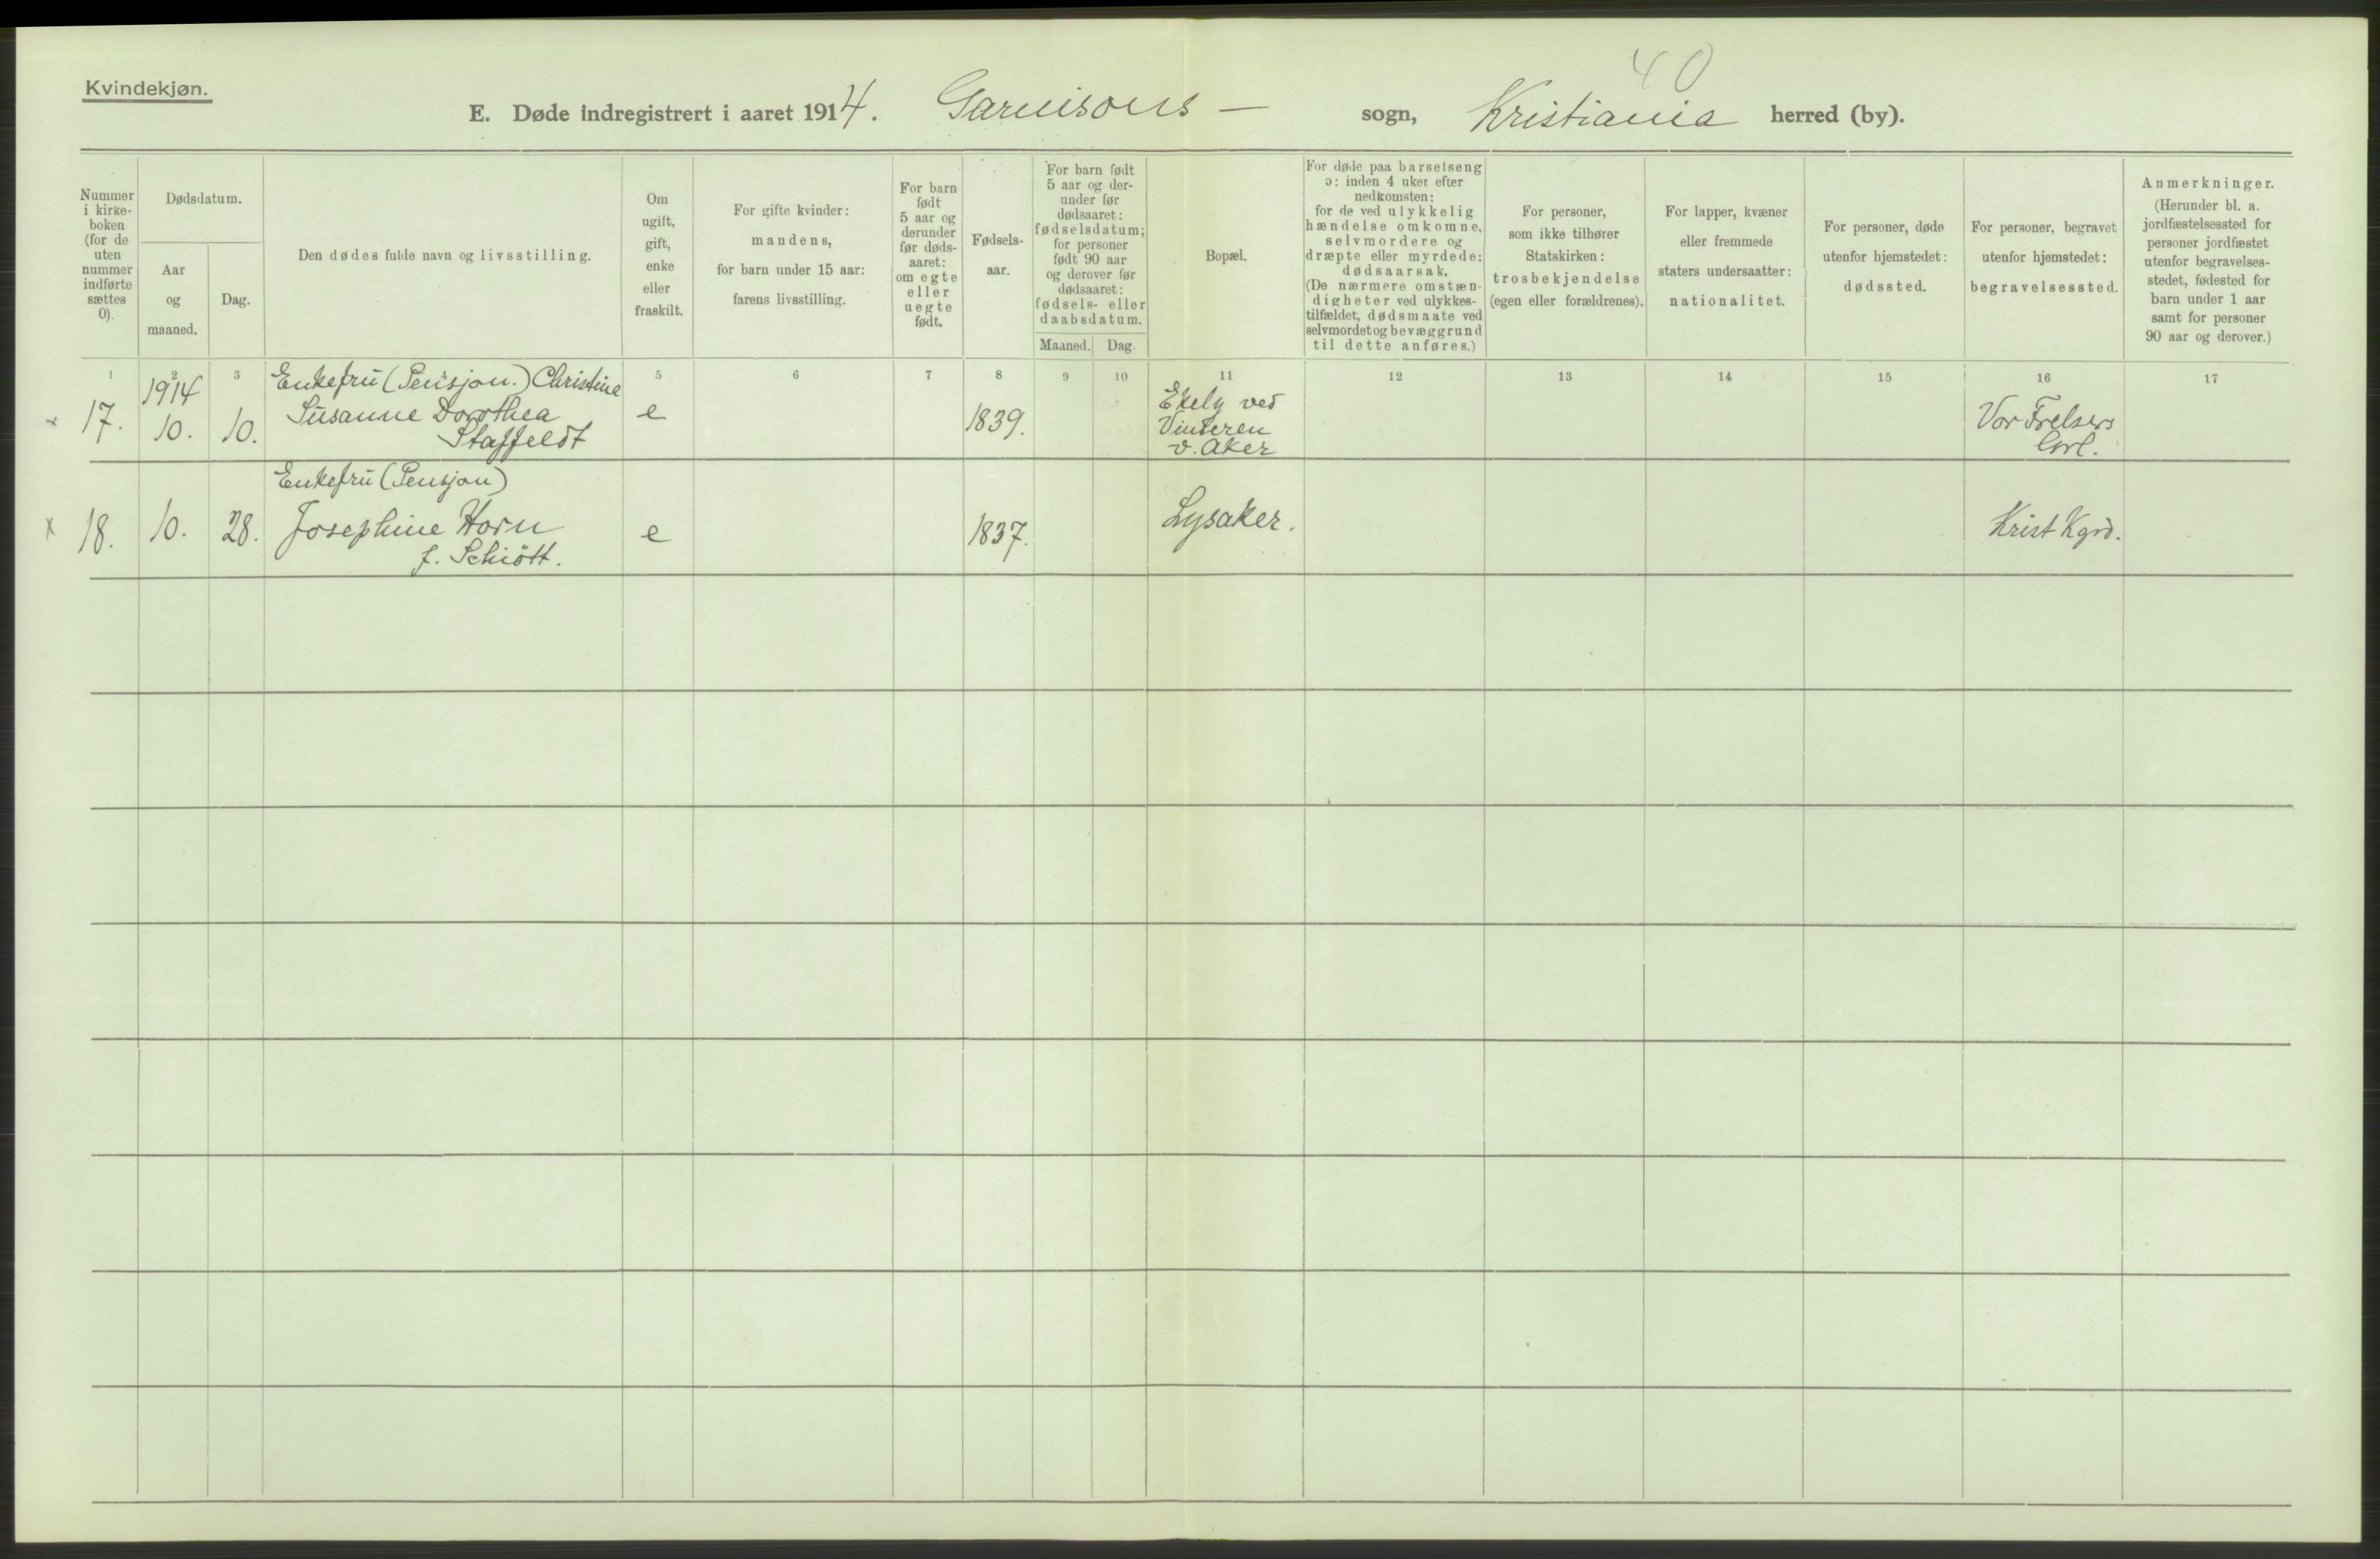 40
Kvindekjøn.
E. Døde indregistrert i aaret 1914. Garnisons — sogn, Kristiania herred (by).
Nummer
i kirke-
boken
(for de
uten
nummer
indførte
sættes
0).
Dødsdatum.
Aar
og
maaned.
Dag.
Den dødes fulde navn og livsstilling.
Om
ugift,
gift,
enke
eller
fraskilt.
For gifte kvinder:
mandens,
for barn under 15 aar:
farens livsstilling.
For barn
født
5 aar og
derunder
før døds-
aaret:
om egte
eller
uegte
født.
Fødsels-
aar.
For barn født
5 aar og der-
under før
dødsaaret:
fødselsdatum;
for personer
født 90 aar
og derover før
dødsaaret:
fødsels- eller
daabsdatum.
Maaned.
Dag.
Bopæl.
For døde paa barselseng
ɔ: inden 4 uker efter
nedkomsten:
for de ved ulykkelig
hændelse omkomne,
selvmordere og
dræpte eller myrdede:
dødsaarsak.
(De nærmere omstæn-
digheter ved ulykkes-
tilfældet, dødsmaate ved
selvmordet og bevæggrund
til dette anføres.)
For personer,
som ikke tilhører
Statskirken:
trosbekjendelse
(egen eller forældrenes).
For lapper, kvæner
eller fremmede
staters undersaatter:
nationalitet.
For personer, døde
utenfor hjemstedet:
dødssted.
For personer, begravet
utenfor hjemstedet:
begravelsessted.
Anmerkninger.
(Herunder bl. a.
jordfæstelsessted for
personer jordfæstet
utenfor begravelses-
stedet, fødested for
barn under 1 aar
samt for personer
90 aar og derover.)
1 2 3 5 6 7 8 9 10 11 12 13 14 15 16 17
x 17.
1914
10.
10.
Enkefrü (Pensjon.) Christine
Süsanne Dorothea
Staffeldt
e
1839.
Ekely ved
Vinderen
v. Aker
Vor Frelsers
Grl.
x 18.
10.
28.
Enkefrü (Pensjon)
Josephine Horn
f. Schiött.
e
1837.
Lysaker.
Krist Kgrd.